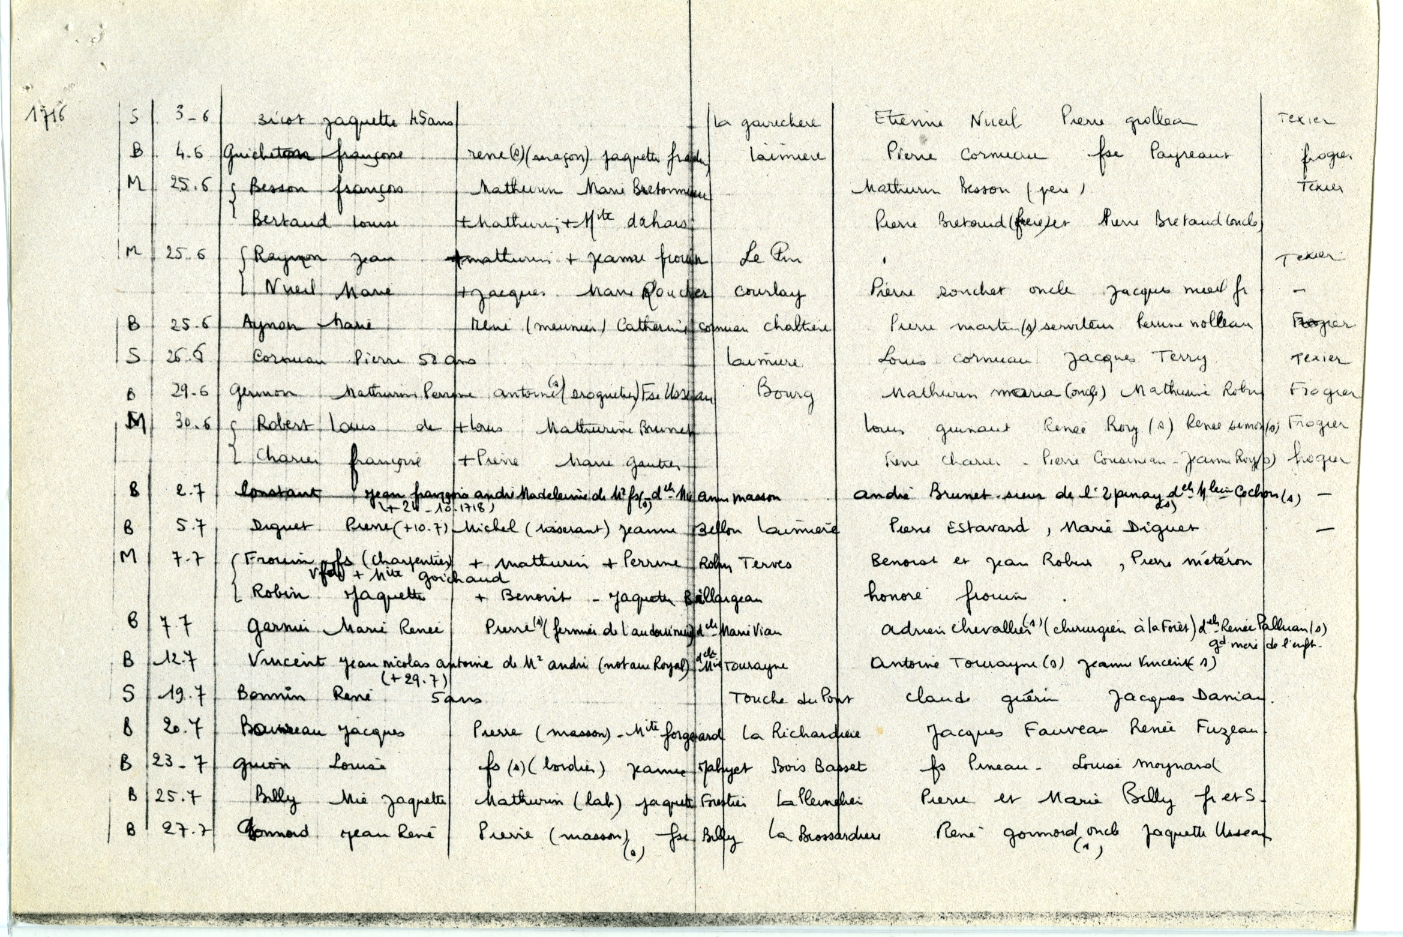 1716 S 3-6 Jaquette 45 ans La gavrechere Etienne Nueil Pierre grolleau Texier
B 4.6 françoise rené (s) jaquette Laimiere Pierre Cornueau fse Payreaut frogier
M 25.6 Besson françois Mathurin Marie Bretonneau Mathurin Besson (pere) Texier
Bertaud Louise + Mathurin + Mite dahais Pierre Bretaud (frere) et Pierre Bretaud (oncle)
M 25.6 Raymon jean + mathurin + jeanne frouin Le Pin Texier
Nueil Marie + jacques Marie courlay Pierre souchet oncle Jacques nueil fr -
B 25.6 Aynon Marie René (meunier) Catherine cornuau chaltiere Pierre martin (s) serviteur Perrine nolleau Frogier
S 26.6 Cornuau Pierre 52 ans Laimiere Louis cornueau Jacques Terry Texier
B 29.6 Germon Mathurin Perrine antoine (s) Fse Usseau Bourg Mathurin maria (oncle) Mathurine Robin Frogier
M 30.6 Robert Louis de + Louis Mathurine Brunet Louis guinaut Renée Rory (s) Renée simon (s) Frogier
Charier françoise + Pierre Marie gautier Pierre Charier - Pierre Cousineau - Jeanne Roy (s) frogier
B 2.7 Constant jean françois andré Madeleine de Mr fs (s) - delle Mie anne masson andré Brunet sieur de l'Epinay (s) delle Mleine Cochon (s) -
(+ 24-10.1718)
B 5.7 Diguet Pierre (+10.7) Michel jeanne Bellon Laimiere Pierre Estavard, Marie Diguet -
M 7.7 Frouin fs (charpentier) + mathurin + Perrine Robin Terves Benoist et jean Robin, Pierre météron
+ Mite goichaud
Robin Jaquette + Benoist - jaquette Baillargeau honoré frouin.
B 7.7 Garnier Marie Renée Pierre (s) (fermier de ) delle Marie Vian Adrien chevallier (s) (chirurgien à la Forêt) delle Renée Palluau (s)
gd mere de l'enft.
B 12.7 Vincent jean nicolas antoine de Mr andré (notaire Royal) delle Mie Tourayne Antoine Tourayne (s) Jeanne Vincent (s)
(+ 29.7)
S 19.7 Bonnin René 5 ans Touche du Pont claude guérin Jacques Daniau.
B 20.7 jacques Pierre (masson) - Mite forgeard La Richardiere Jacques Fauveau Renée Fuzeau
B 23-7 Guion Louise fs (s) (bordier) jeanne Mahyet Bois Basset fs Pineau - Louise moynard
B 25.7 Billy Mie Jaquette Mathurin (lab) jaquette Forestier Pierre et Marie Billy fr et S.
B 27.7 Gonnord jean René Pierre (masson) (s) fse Billy La Brossardiere René gonnord oncle (s) Jaquette Usseau